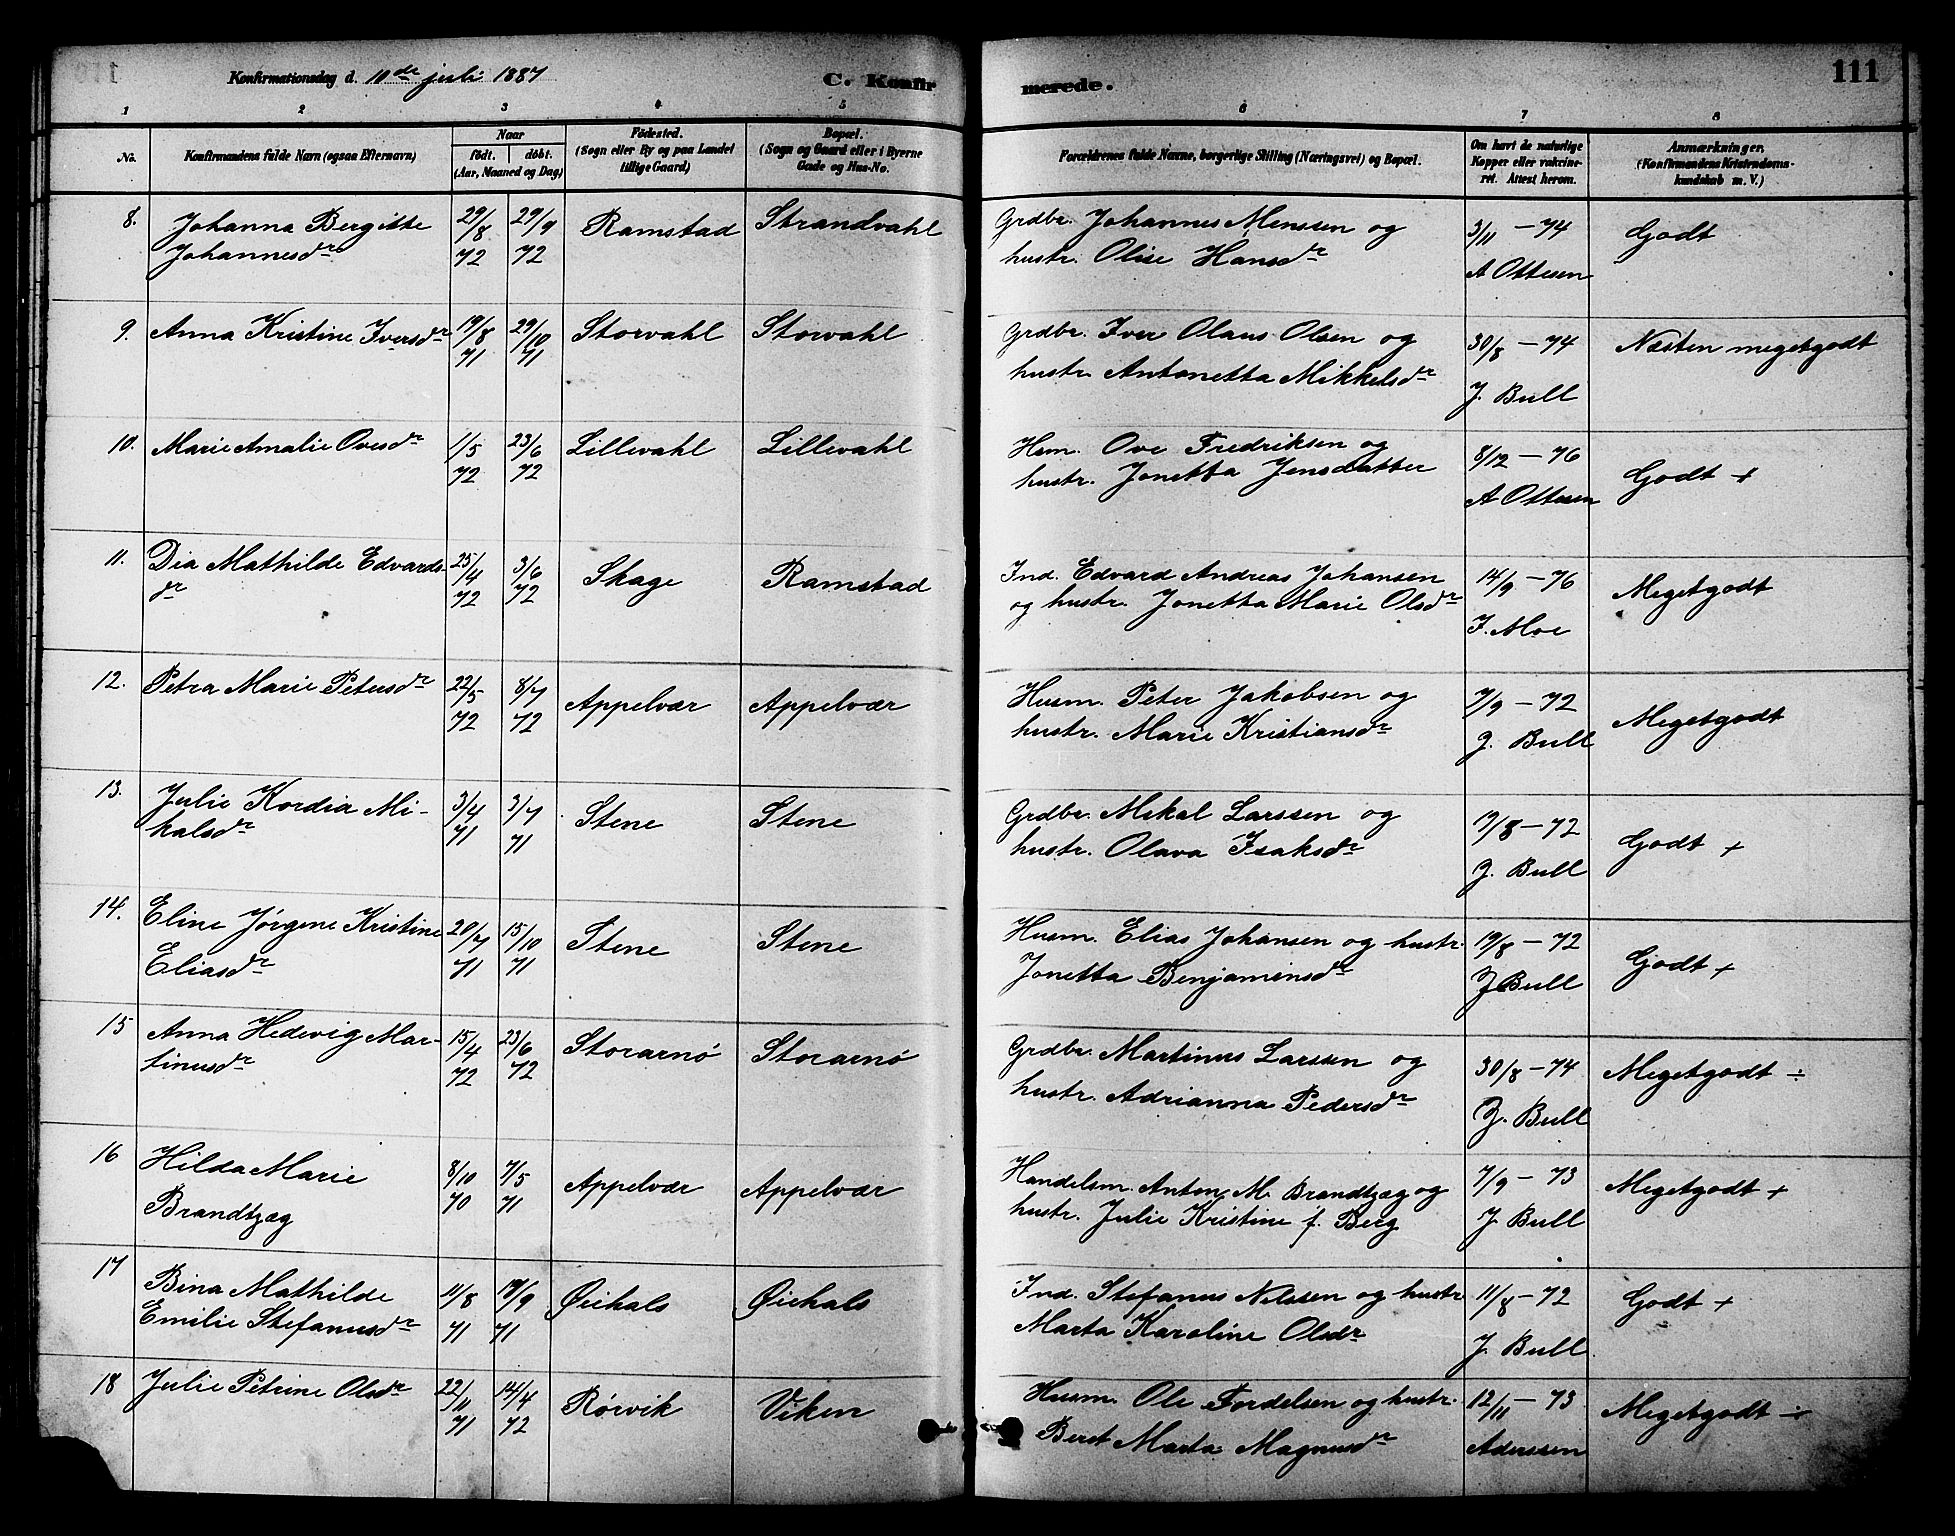 Konfirmationsdag d. 10de juli 1887
C. Konfir
merede.
111
1 2 3 4 5 6 7 8
No.
Konfirmandens fulde Navn (ogsaa Efternavn)
Naar
født. døbt.
(Aar, Maaned og Dag)
Fødested.
(Sogn eller By og paa Landet
tillige Gaard)
Bopæl.
(Sogn og Gaard eller i Byerne
Gade og Hus-No.
Forældrenes fulde Navne, borgerlige Stilling (Næringsvei) og Bopæl.
Om havt de naturlige
Kopper eller vaccine-
ret. Attest herom.
Anmærkninger.
(Konfirmandens Kristendoms-
kundskab m. V.)
8. Johanna Bergitte 29/8 29/9 Ramstad Strandvahl Grdbr. Johannes Menssen og 3/11 - 74 Godt
Johannesdr 72 72 hustr. Olise Hansdr A Ottesen
9. Anna Kristine Iversdr 19/8 29/10 Storvahl Storvahl Grdbr. Iver Olaus Olsen og 30/8 - 74 Næsten megetgodt
71 71 hustr. Antonetta Mikkelsdr J. Bull
10. Marie Amalie Ovesdr 1/5 23/6 Lillevahl Lillevahl Hsm. Ove Fredriksen og 8/12 - 76 Godt +
72 72 hustr. Jonetta Jensdatter A Ottesen
11. Dia Mathilde Edvards- 25/4 3/6 Skage Ramstad Ind. Edvard Andreas Johansen 14/9 - 76 Megetgodt
dr 72 72 og hustr. Jonetta Marie Olsdr I. Moe
12. Petra Marie Petersdr 22/5 8/7 Appelvær Appelvær Husm. Peter Jakobsen og 7/9 - 72 Megetgodt
72 72 hustr. Marie Kristiansdr J. Bull
13. Julie Kordia Mi- 3/4 3/7 Stene Stene Grdbr. Mikal Larssen og 19/8 - 72 Godt +
kalsdr 71 71 hustr. Olava Isaksdr J. Bull
14. Eline Jørgene Kristine 20/7 15/10 Stene Stene Husm. Elias Johansen og hustr. 19/8 - 72 Godt +
Eliasdr 71 71 Jonetta Benjaminsdr J Bull
15 Anna Hedevig Mar- 15/4 23/6 Storarnø Storarnø Grdbr. Martinus Larssen og 30/8 - 74 Megetgodt ÷
tinusdr 72 72 hustr. Adrianna Pedersdr J. Bull
16 Hilda Marie 8/10 7/5 Appelvær Appelvær Handelsm. Anton M. Brandtzæg og 7/9 - 73 Megetgodt +
Brandtzæg 70 71 hustr. Julie Kristine f. Berg J Bull
17 Bina Mathilde 11/8 19/9 Øiehals Øiehals Ind. Stefanus Nilssen og hustr 11/8 - 72 Godt +
Emilie Stefanusdr 71 71 Marta Karoline Olsdr J. Bull
18 Julie Petrine Olsdr 22/11 14/4 Rørvik Viken Husm. Ole Fordelsen og hustr. 12/11 - 73 Megetgodt ÷
71 72 Beret Marta Magnusdr Aderssen